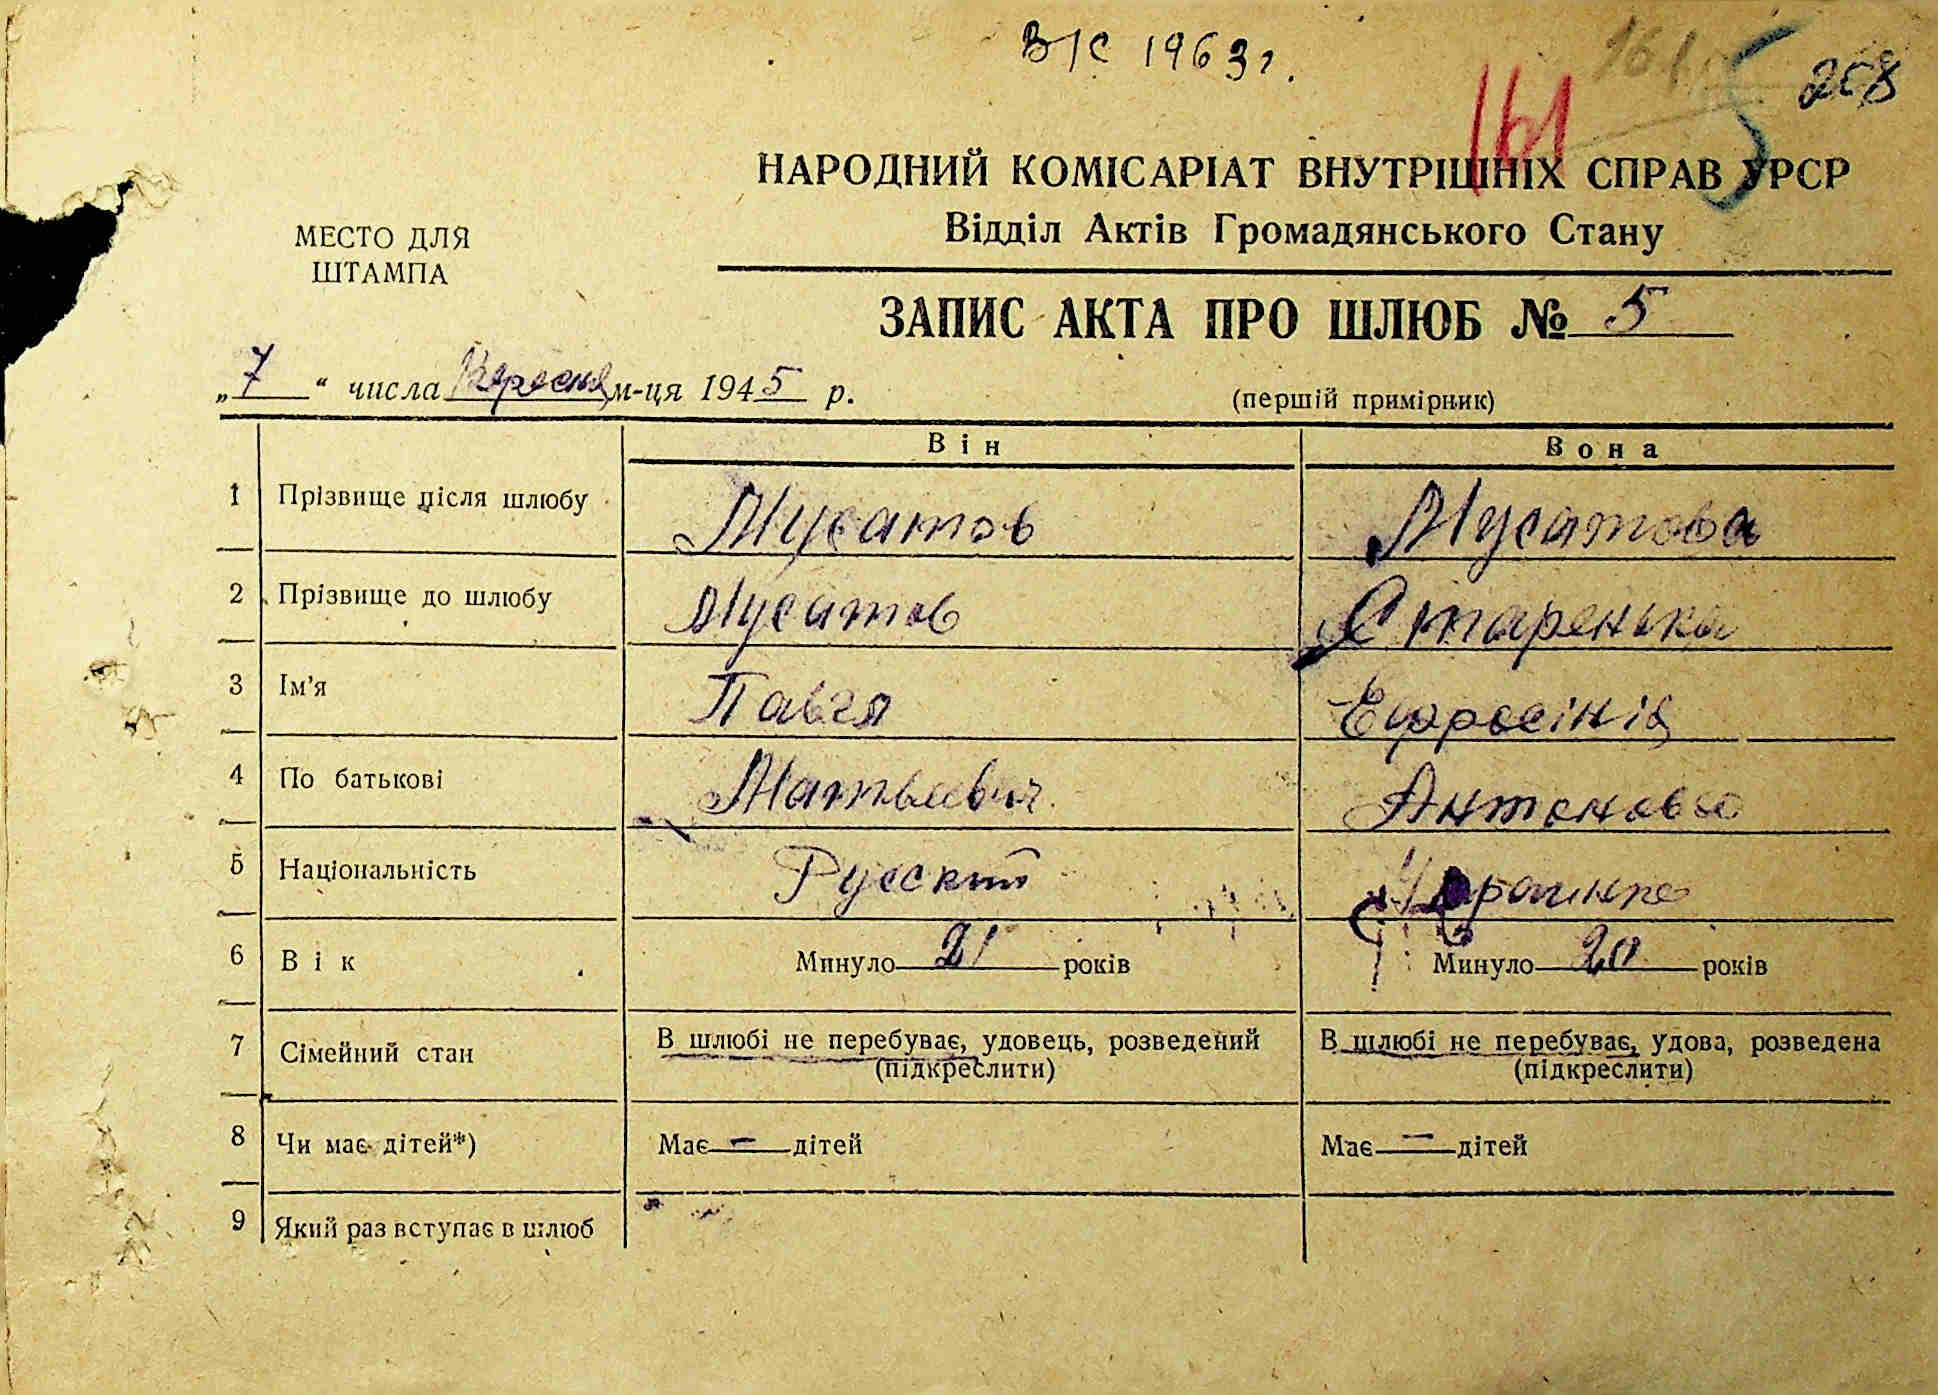 В/С 1963 г.
161
161
5
208
НАРОДНИЙ КОМІСАРІАТ ВНУТРІШНІХ СПРАВ УРСР
Відділ Актів Громадянського Стану
МЕСТО ДЛЯ
ШТАМПА
ЗАПИС АКТА ПРО ШЛЮБ № 5
„7“ числа Вересня м-ця 1945 р.
(перший примірник)
Він Вона
1 Прізвище після шлюбу Мусатов Мусатова
2 Прізвище до шлюбу Мусатов Старенька
3 Ім'я Павел Ефросінія
4 По батькові Матвеевич Антоновна
5 Національність Русский Украинка
6 Вік Минуло 21 років Минуло 20 років
7 Сімейний стан В шлюбі не перебуває, удовець, розведений В шлюбі не перебуває, удова, розведена
(підкреслити) (підкреслити)
8 Чи має дітей*) Має — дітей Має — дітей
9 Який раз вступає в шлюб